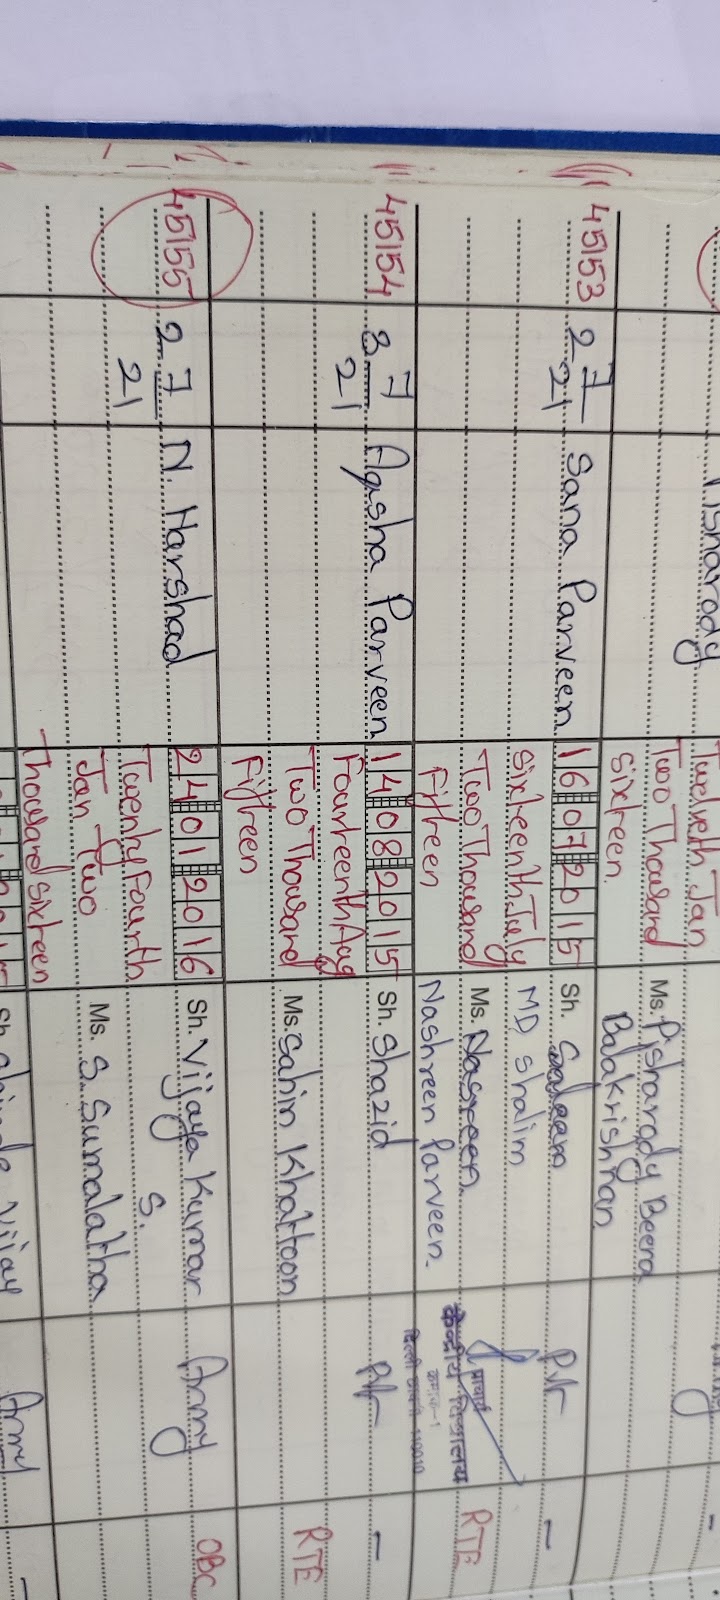 Twelveth Jan
Two Thousand
Sixteen
Ms. Pisharody Beena
Balakrishnan
-
45153
2 7
21
Sana Parveen
16 07 2015
Sixteenth July
Two Thousand
Fifteen
Sh. Saleem
MD Shalim
Ms. Nasreen
Nashreen Parveen
Pvt
-
RTE
प्राचार्य
केन्द्रीय विद्यालय
क्रमांक-1
दिल्ली छावनी 110010
45154
3 7
21
Agisha Parveen
14 08 2015
Fourteenth Aug
Two Thousand
Fifteen
Sh. Shazid
Ms. Sahin Khattoon
Pvt
-
RTE
45155
2 7
21
N. Harshad
24 01 2016
Twenty Fourth
Jan Two
Thousand Sixteen
Sh. Vijaya Kumar
S.
Ms. S. Sumalatha
Army
OBC
Sh
Vijay
Army
-